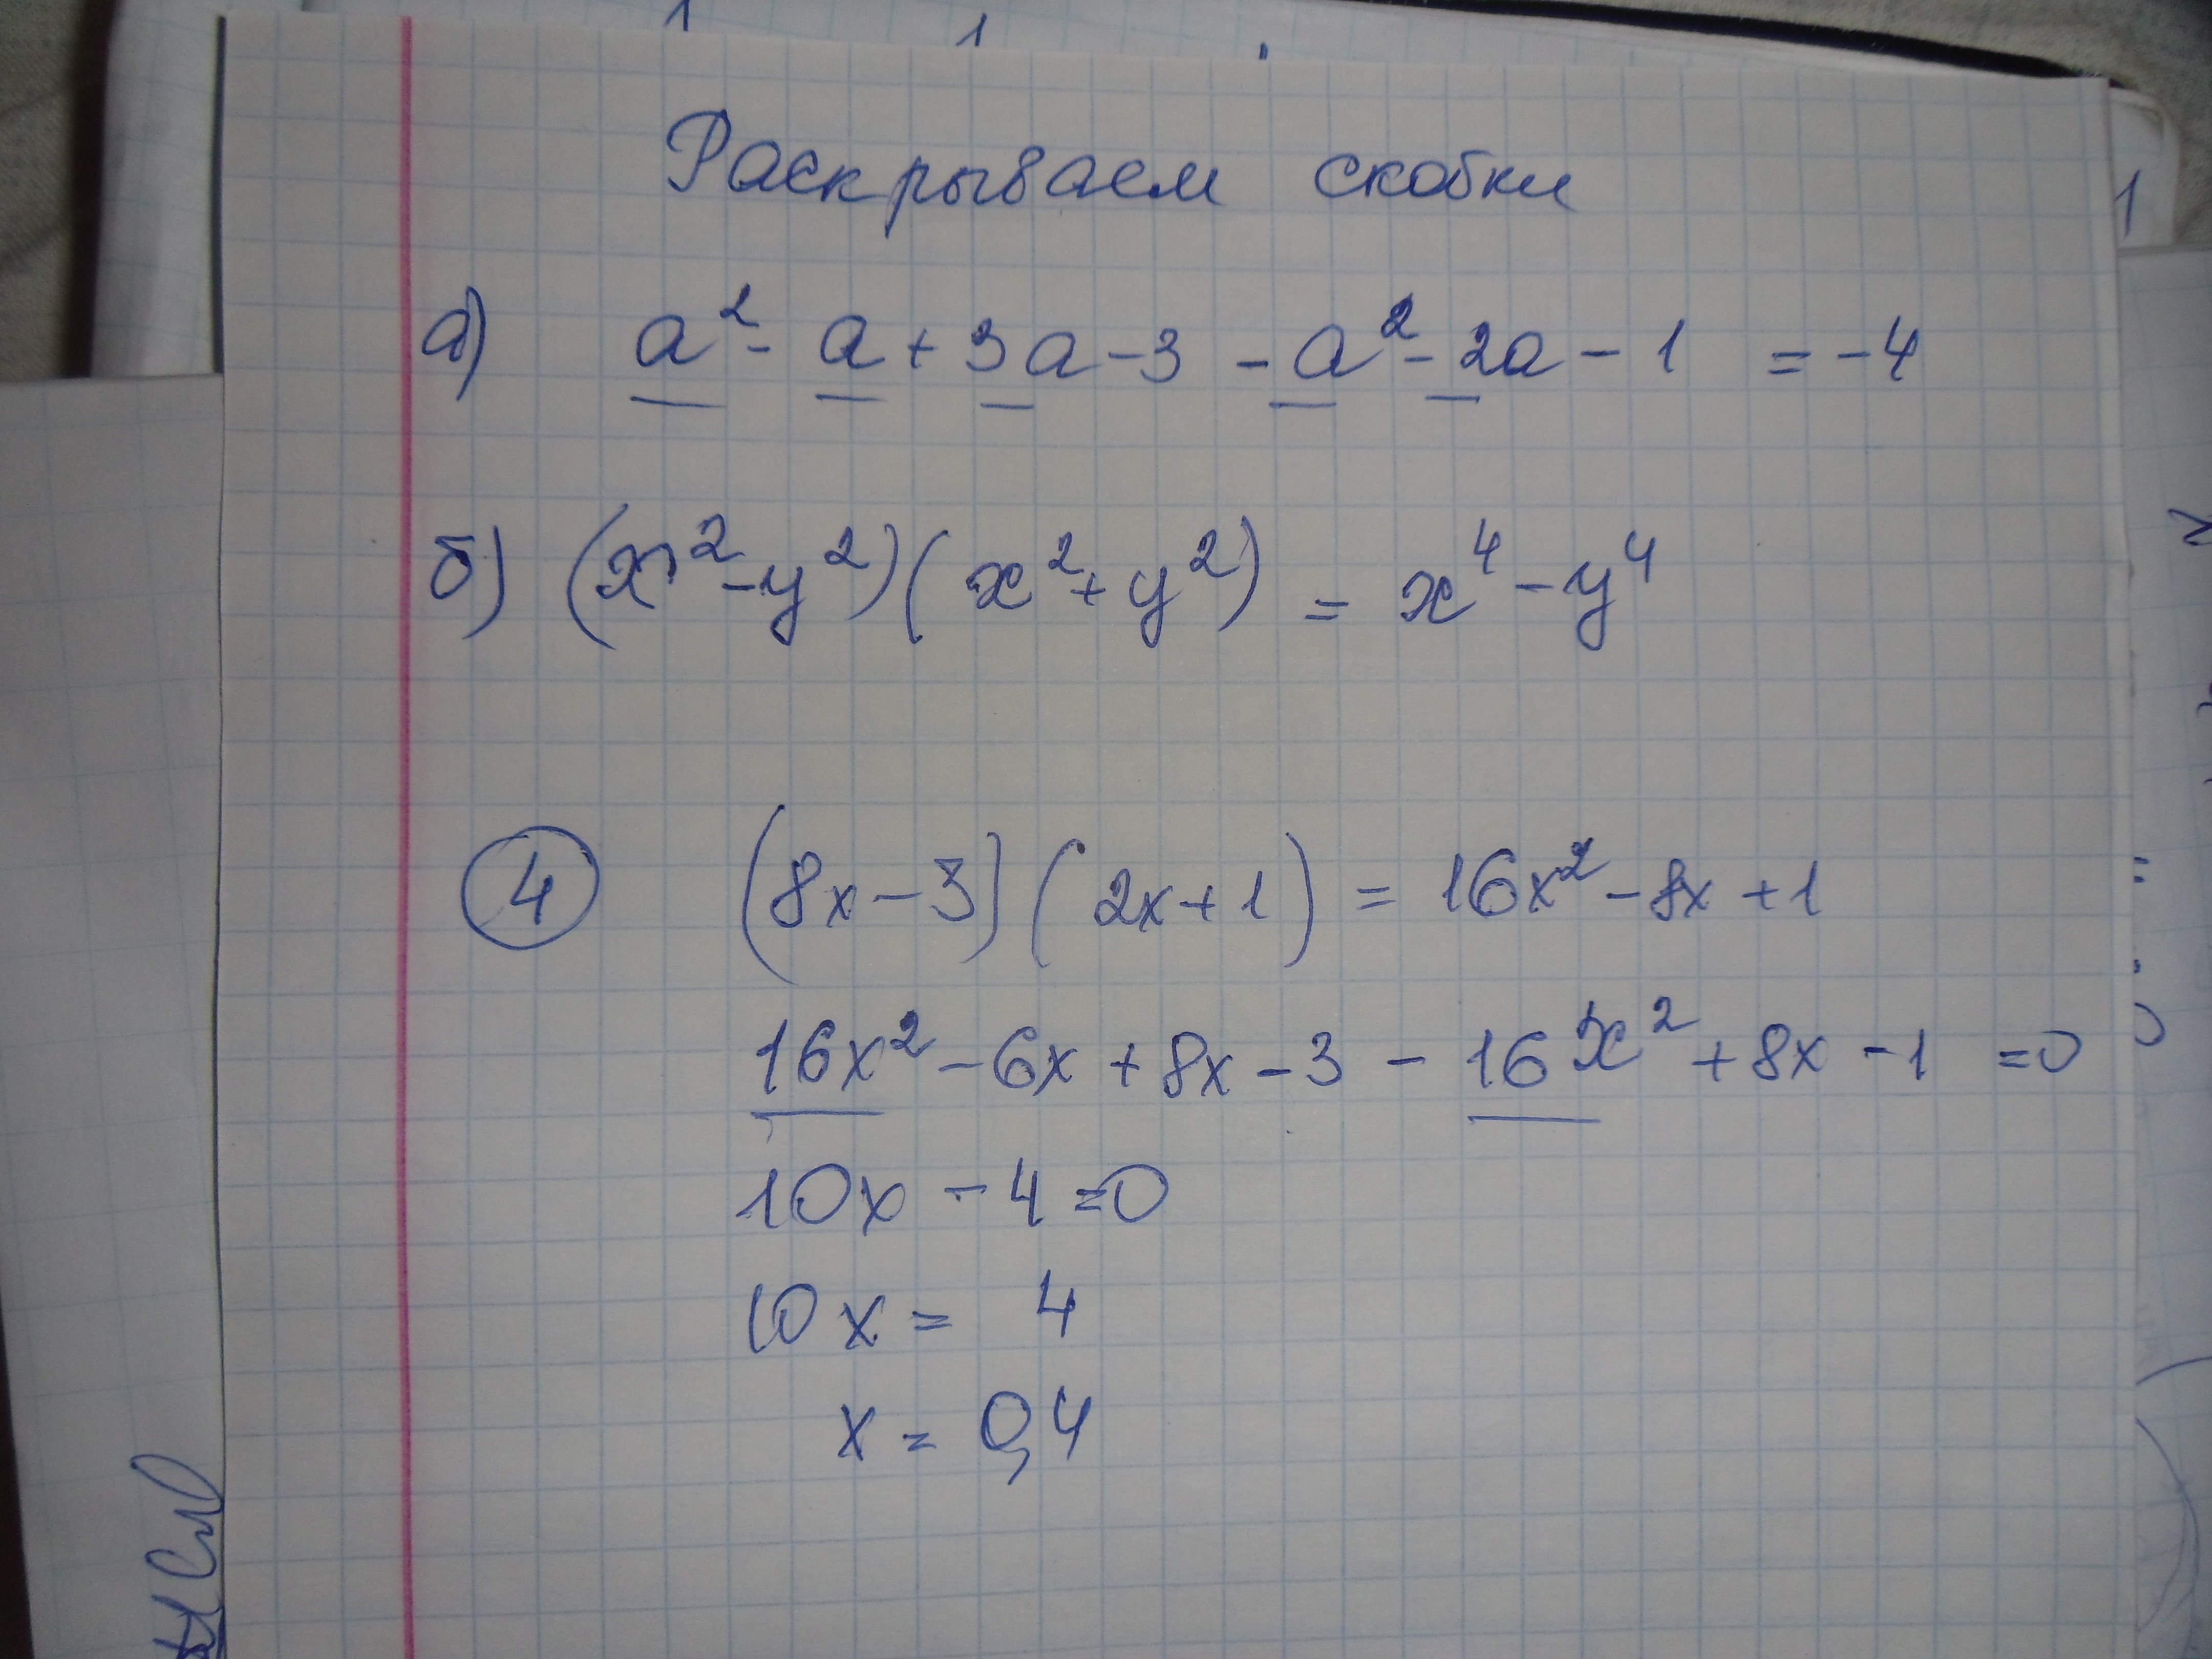 Раскрываем скобки
а) a² - a + 3a - 3 - a² - 2a - 1 = -4
б) (x² - y²)(x² + y²) = x⁴ - y⁴
4 (8x - 3)(2x + 1) = 16x² - 8x + 1
16x² - 6x + 8x - 3 - 16x² + 8x - 1 = 0
10x - 4 = 0
10x = 4
x = 0,4